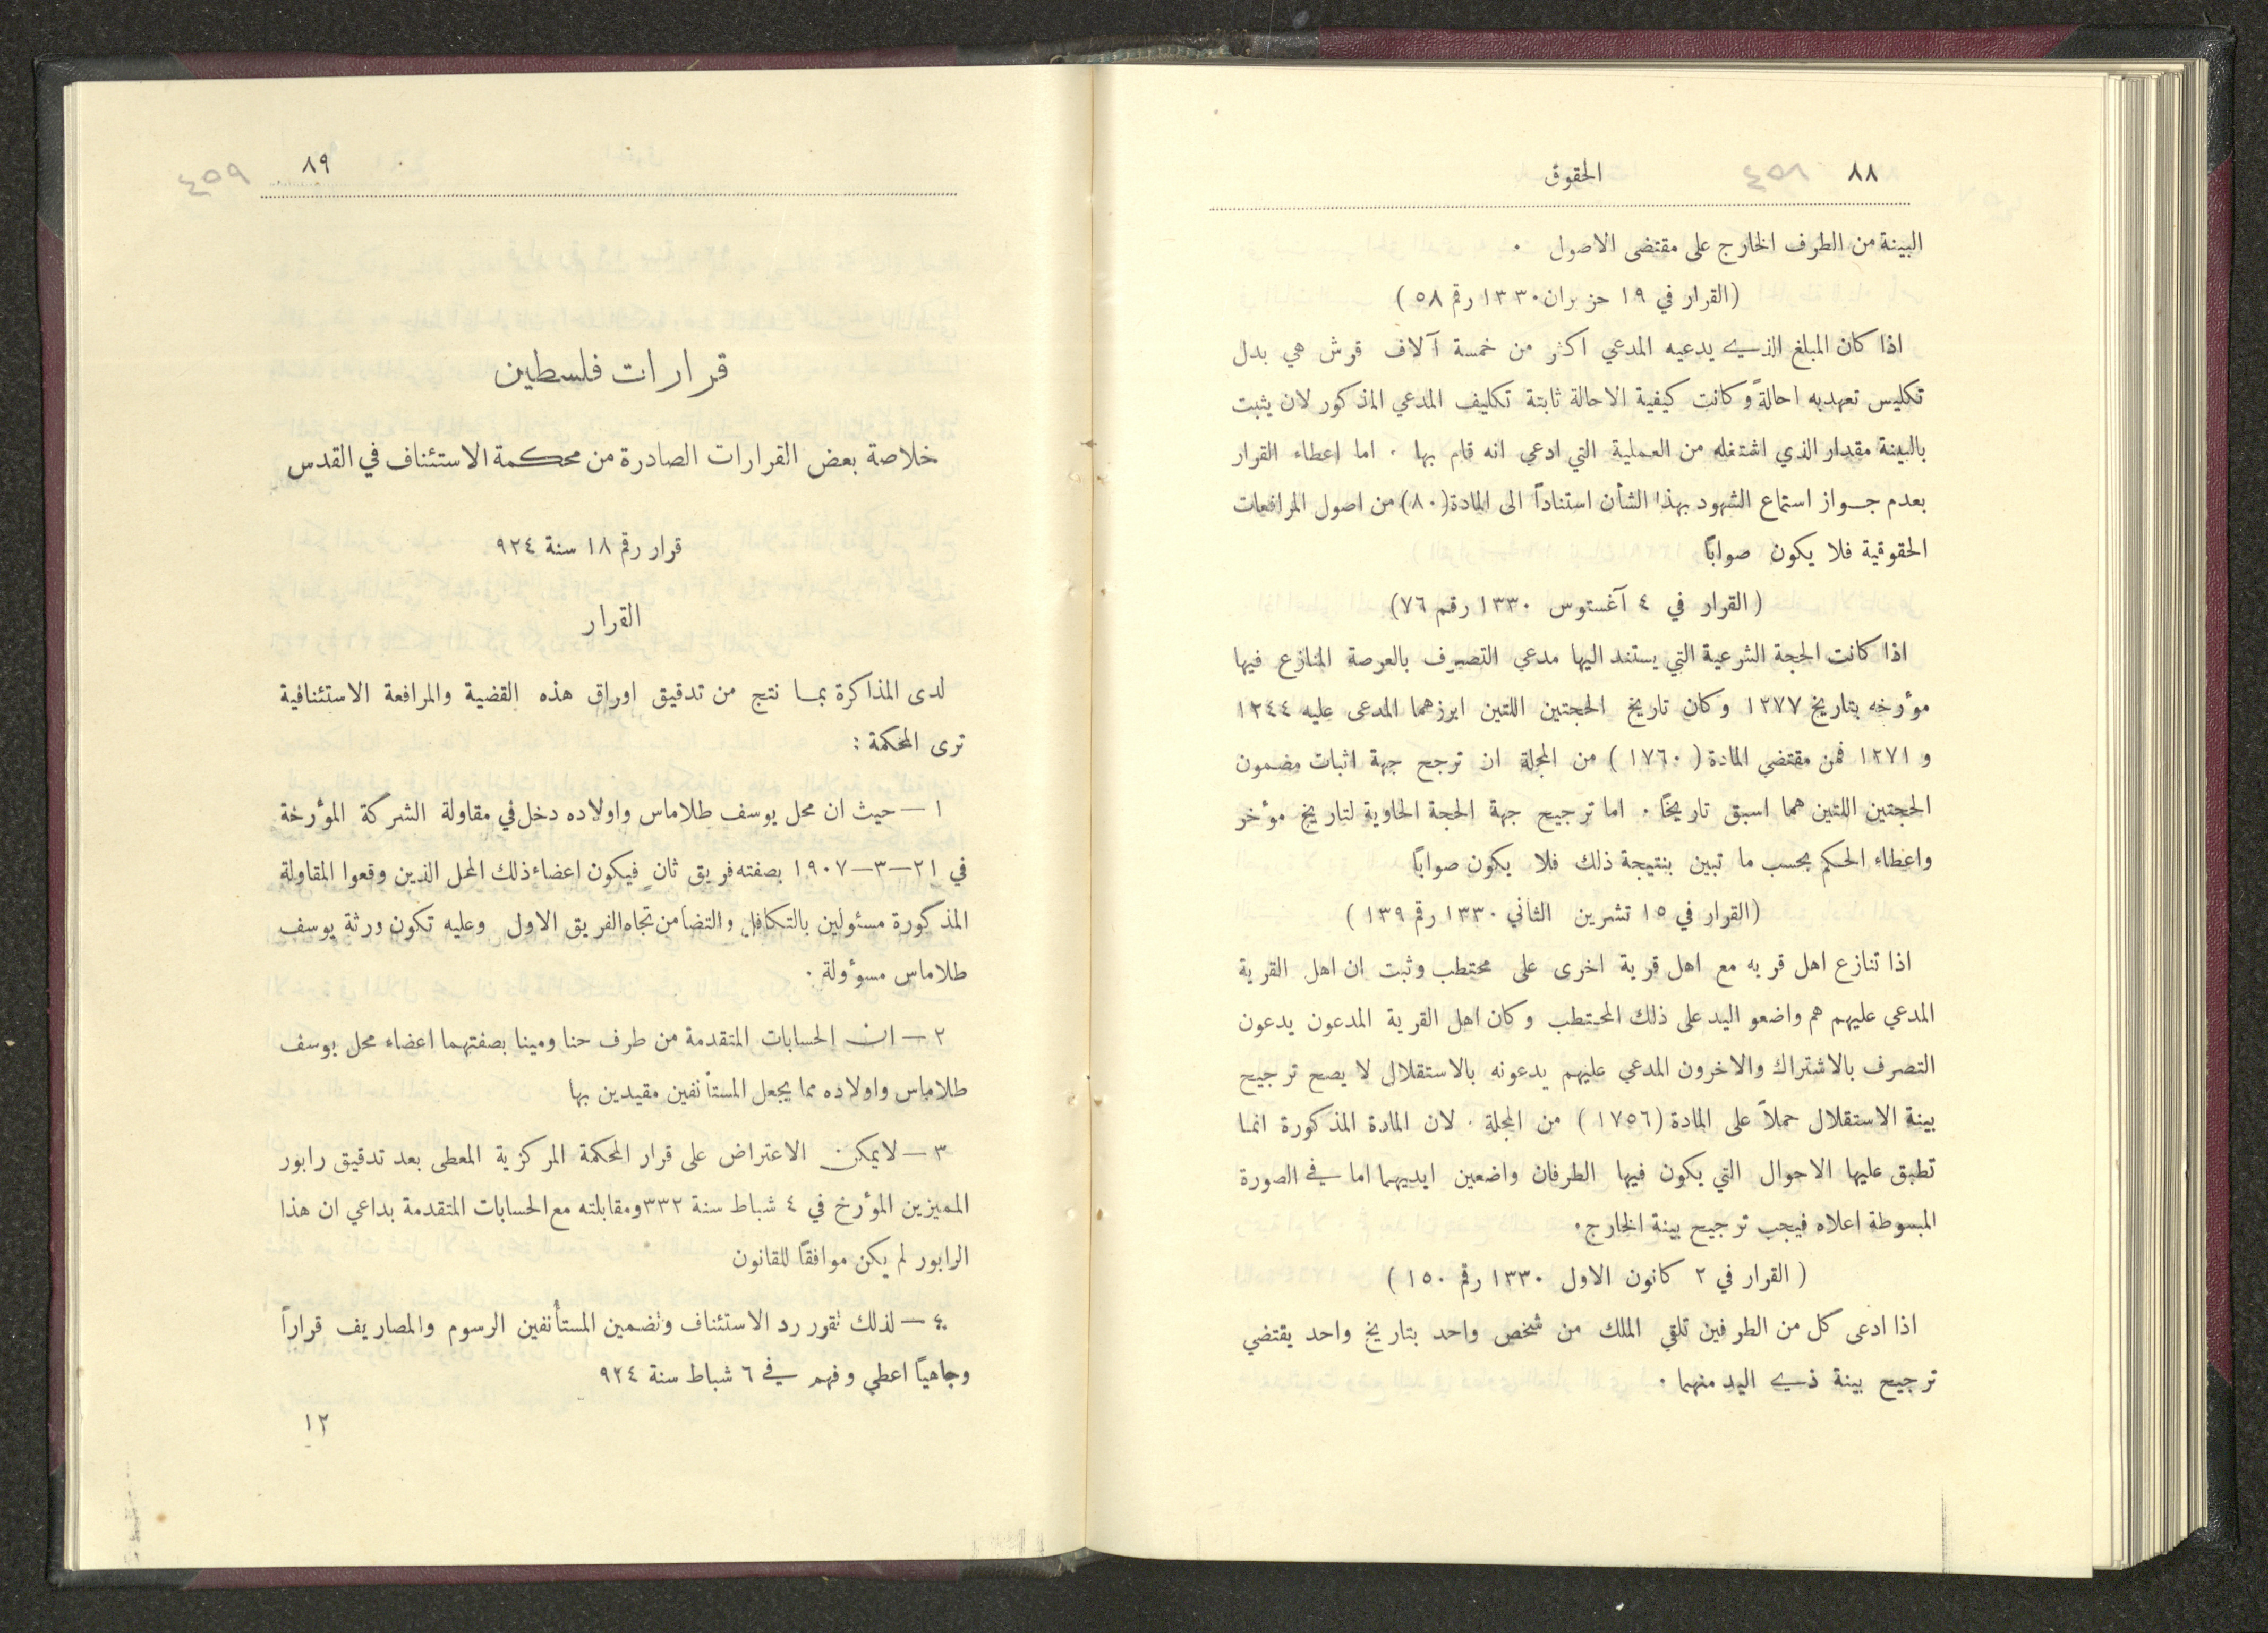 ٨٨ ٤٥٨ الحقوق
البينة من الطرف الخارج على مقتضى الاصول .
(القرار في ١٩ حزيران ١٣٣٠ رقم ٥٨ )
اذا كان المبلغ الذي يدعيه المدعي اكثر من خمسة آلاف قرش هي بدل
تكليس تعهد به احالةً وكانت كيفية الاحالة ثابتة تكليف المدعي المذكور لان يثبت
بالبينة مقدار الذي اشتغله من العملية التي ادعى انه قام بها . اما اعطاء القرار
بعدم جواز استماع الشهود بهذا الشأن استناداً الى المادة (٨٠) من اصول المرافعات
الحقوقية فلا يكون صواباً
(القرار في ٤ آغستوس ١٣٣٠ رقم ٧٦)
اذا كانت الحجة الشرعية التي يستند اليها مدعي التصرف بالعرصة المنازع فيها
مؤرخه بتاريخ ١٢٧٧ وكان تاريخ الحجتين اللتين ابرزهما المدعى عليه ١٢٤٤
و ١٢٧١ فمن مقتضي المادة ( ١٧٦٠ ) من المجلة ان ترجح جهة اثبات مضمون
الحجتين اللتين هما اسبق تاريخاً . اما ترجيح جهة الحجة الحاوية لتاريخ مؤخر
واعطاء الحكم بحسب ما تبين بنتيجة ذلك فلا يكون صواباً
(القرار في ١٥ تشرين الثاني ١٣٣٠ رقم ١٣٩ )
اذا تنازع اهل قريه مع اهل قرية اخرى على محتطب وثبت ان اهل القرية
المدعي عليهم هم واضعو اليد على ذلك المحتطب وكان اهل القرية المدعون يدعون
التصرف بالاشتراك والاخرون المدعي عليهم يدعونه بالاستقلال لا يصح ترجيح
بينة الاستقلال حملاً على المادة (١٧٥٦ ) من المجلة . لان المادة المذكورة انما
تطبق عليها الاحوال التي يكون فيها الطرفان واضعين ايديهما اما في الصورة
المبسوطة اعلاه فيجب ترجيح بينة الخارج .
( القرار في ٢ كانون الاول ١٣٣٠ رقم ١٥٠ )
اذا ادعى كل من الطرفين تلقي الملك من شخص واحد بتاريخ واحد يقتضي
ترجيح بينة ذي اليد منهما .
٨٩ ٤٥٩
قرارات فلسطين
خلاصة بعض القرارات الصادرة من محكمة الاستئناف في القدس
قرار رقم ١٨ سنة ٩٢٤
القرار
لدى المذاكرة بما نتج من تدقيق اوراق هذه القضية والمرافعة الاستئنافية
ترى المحكمة :
١ — حيث ان محل يوسف طلاماس واولاده دخل في مقاولة الشركة المؤرخة
في ٢١—٣—١٩٠٧ بصفته فريق ثان فيكون اعضاء ذلك المحل الذين وقعوا المقاولة
المذكورة مسئولين بالتكافل والتضامن تجاه الفريق الاول وعليه تكون ورثة يوسف
طلاماس مسوؤلة .
٢ — ان الحسابات المتقدمة من طرف حنا ومينا بصفتهما اعضاء محل يوسف
طلاماس واولاده مما يجعل المستأنفين مقيدين بها
٣ — لا يمكن الاعتراض على قرار المحكمة المركزية المعطى بعد تدقيق رابور
المميزين المؤرخ في ٤ شباط سنة ٣٣٢ ومقابلته مع الحسابات المتقدمة بداعي ان هذا
الرابور لم يكن موافقاً للقانون
٤ — لذلك تقرر رد الاستئناف وتضمين المستأنفين الرسوم والمصاريف قراراً
وجاهياً اعطي وفهم في ٦ شباط سنة ٩٢٤
١٢